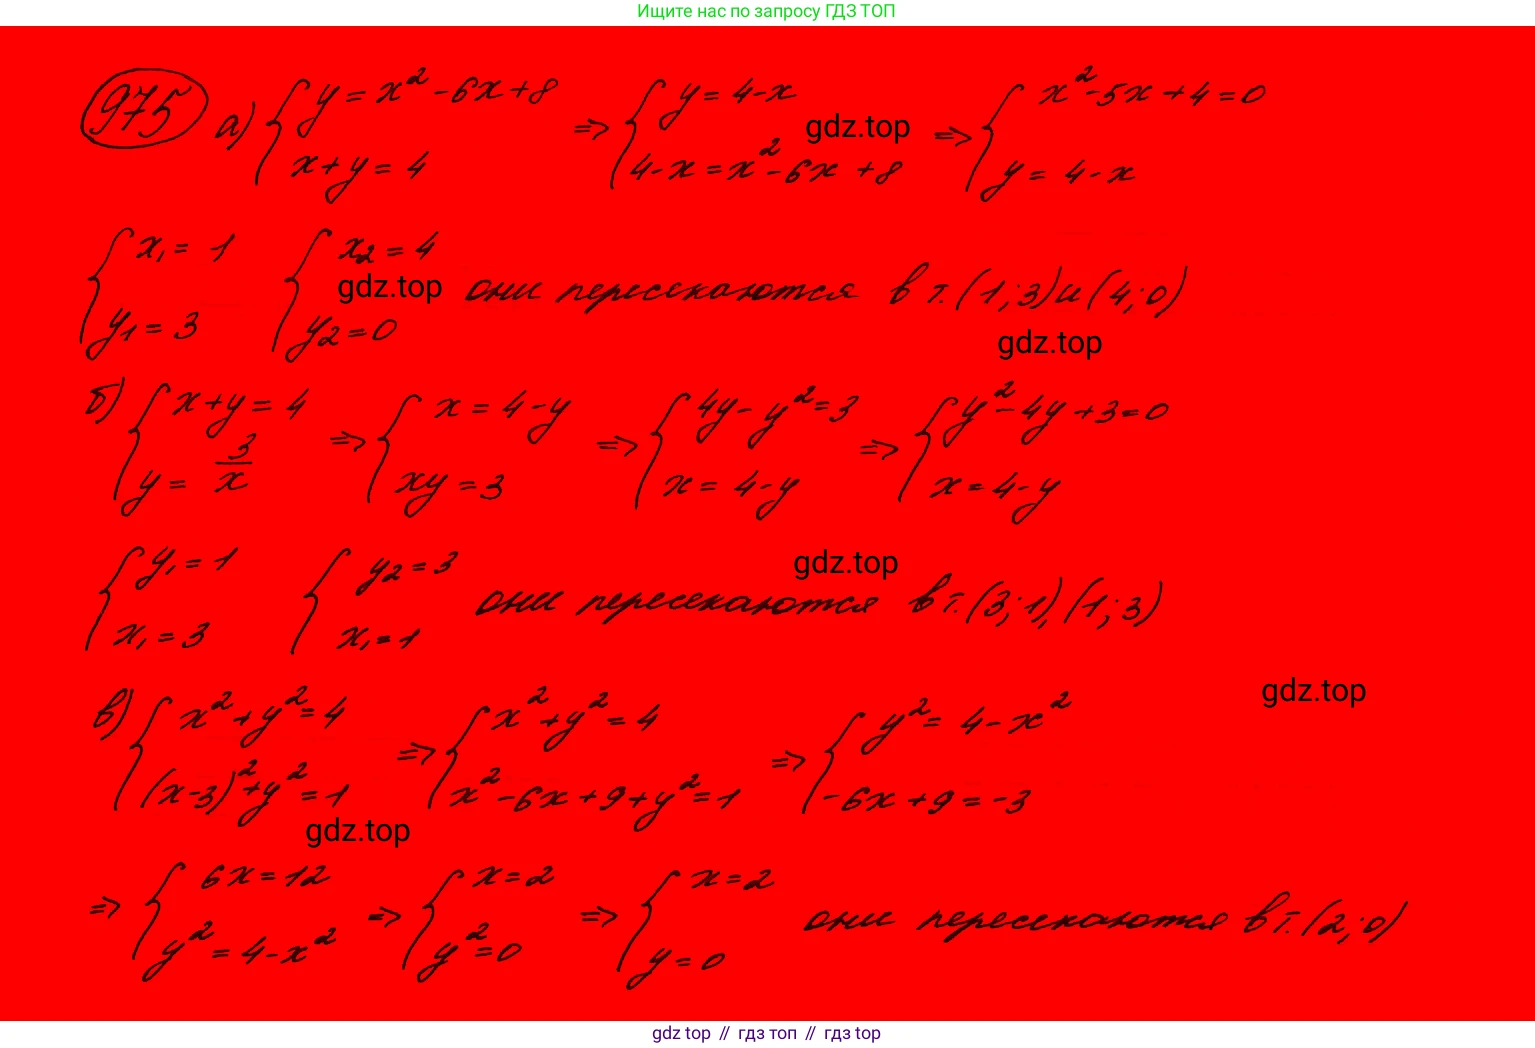 Ищите нас по запросу ГДЗ ТОП
975 а) { y = x² - 6x + 8 ; x + y = 4 => { y = 4 - x ; 4 - x = x² - 6x + 8 => { x² - 5x + 4 = 0 ; y = 4 - x
gdz.top
{ x₁ = 1 ; y₁ = 3 { x₂ = 4 ; y₂ = 0 они пересекаются в т. (1; 3) и (4; 0)
gdz.top
gdz.top
б) { x + y = 4 ; y = 3/x => { x = 4 - y ; xy = 3 => { 4y - y² = 3 ; x = 4 - y => { y² - 4y + 3 = 0 ; x = 4 - y
{ y₁ = 1 ; x₁ = 3 { y₂ = 3 ; x₁ = 1 они пересекаются в т. (3; 1), (1; 3)
gdz.top
gdz.top
в) { x² + y² = 4 ; (x - 3)² + y² = 1 => { x² + y² = 4 ; x² - 6x + 9 + y² = 1 => { y² = 4 - x² ; -6x + 9 = -3
gdz.top
=> { 6x = 12 ; y² = 4 - x² => { x = 2 ; y² = 0 => { x = 2 ; y = 0 они пересекаются в т. (2; 0)
gdz top // гдз топ // гдз top